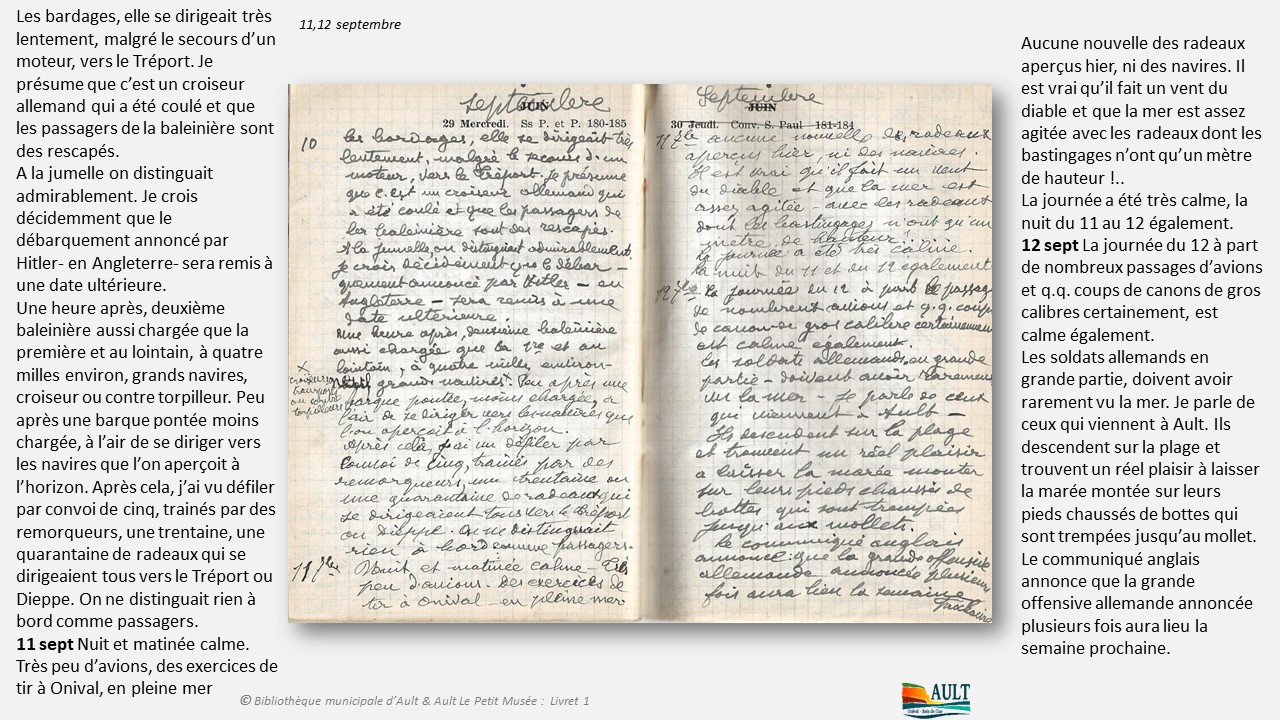 Les bardages, elle se dirigeait très
lentement, malgré le secours d’un
moteur, vers le Tréport. Je
présume que c’est un croiseur
allemand qui a été coulé et que
les passagers de la baleinière sont
des rescapés.
A la jumelle on distinguait
admirablement. Je crois
décidemment que le
débarquement annoncé par
Hitler- en Angleterre- sera remis à
une date ultérieure.
Une heure après, deuxième
baleinière aussi chargée que la
première et au lointain, à quatre
milles environ, grands navires,
croiseur ou contre torpilleur. Peu
après une barque pontée moins
chargée, à l’air de se diriger vers
les navires que l’on aperçoit à
l’horizon. Après cela, j’ai vu défiler
par convoi de cinq, trainés par des
remorqueurs, une trentaine, une
quarantaine de radeaux qui se
dirigeaient tous vers le Tréport ou
Dieppe. On ne distinguait rien à
bord comme passagers.
11 sept Nuit et matinée calme.
Très peu d’avions, des exercices de
tir à Onival, en pleine mer
11,12 septembre
septembre
JUIN
29 Mercredi. Ss P. et P. 180-185
10 les bordages, elle se dirigeait très
lentement, malgré le secours d'un
moteur, vers le Tréport. Je présume
que c'est un croiseur allemand qui
a été coulé et que les passagers de
la baleinière sont des rescapés.
A la jumelle, on distinguait admirablement.
Je crois décidément que le débar-
quement annoncé par Hitler - en
Angleterre - sera remis à une
date ultérieure.
Une heure après, deuxième baleinière
aussi chargée que la 1re et au
lointain, à quatre milles environ-
X
croiseurs
ou contre
torpilleurs
grands navires. Peu après une
barque pontée, moins chargée, a
l'air de se diriger vers les navires que
l'on aperçoit à l'horizon.
Après cela, j'ai vu défiler par
convoi de cinq, trainés par des
remorqueurs, une trentaine ou
une quarantaine de radeaux qui
se dirigeaient tous vers le Tréport
ou Dieppe. On ne distinguait
rien à bord comme passagers.
11 7bre Nuit et matinée calme - Très
peu d'avions - des exercices de
tir à Onival - en pleine mer.
Septembre
JUIN
30 Jeudi. Conv. S. Paul 181-184
11 7bre aucune nouvelle des radeaux
aperçus hier, ni des navires.
Il est vrai qu'il fait un vent
du diable et que la mer est
assez agitée - avec les radeaux
dont les bastingages n'ont qu'un
mètre de hauteur!
La journée a été très calme.
la nuit du 11 et du 12 également
12 7bre La journée du 12 à part de passages
de nombreux avions et q.q. coups
de canon de gros calibre certainement
est calme également.
Les soldats allemands, en grande
partie - doivent avoir rarement
vu la mer - Je parle de ceux
qui viennent à Ault -
Ils descendent sur la plage
et trouvent un réel plaisir
a laisser la marée monter
sur leurs pieds chaussés de
bottes qui sont trempées
jusqu'aux mollets.
Le communiqué anglais
annonce que la grande offensive
allemande annoncée plusieurs
fois aura lieu la semaine
prochaine
Aucune nouvelle des radeaux
aperçus hier, ni des navires. Il
est vrai qu’il fait un vent du
diable et que la mer est assez
agitée avec les radeaux dont les
bastingages n’ont qu’un mètre
de hauteur !..
La journée a été très calme, la
nuit du 11 au 12 également.
12 sept La journée du 12 à part
de nombreux passages d’avions
et q.q. coups de canons de gros
calibres certainement, est
calme également.
Les soldats allemands en
grande partie, doivent avoir
rarement vu la mer. Je parle de
ceux qui viennent à Ault. Ils
descendent sur la plage et
trouvent un réel plaisir à laisser
la marée montée sur leurs
pieds chaussés de bottes qui
sont trempées jusqu’au mollet.
Le communiqué anglais
annonce que la grande
offensive allemande annoncée
plusieurs fois aura lieu la
semaine prochaine.
© Bibliothèque municipale d’Ault & Ault Le Petit Musée : Livret 1
AULT
Onival - Bois de Cise